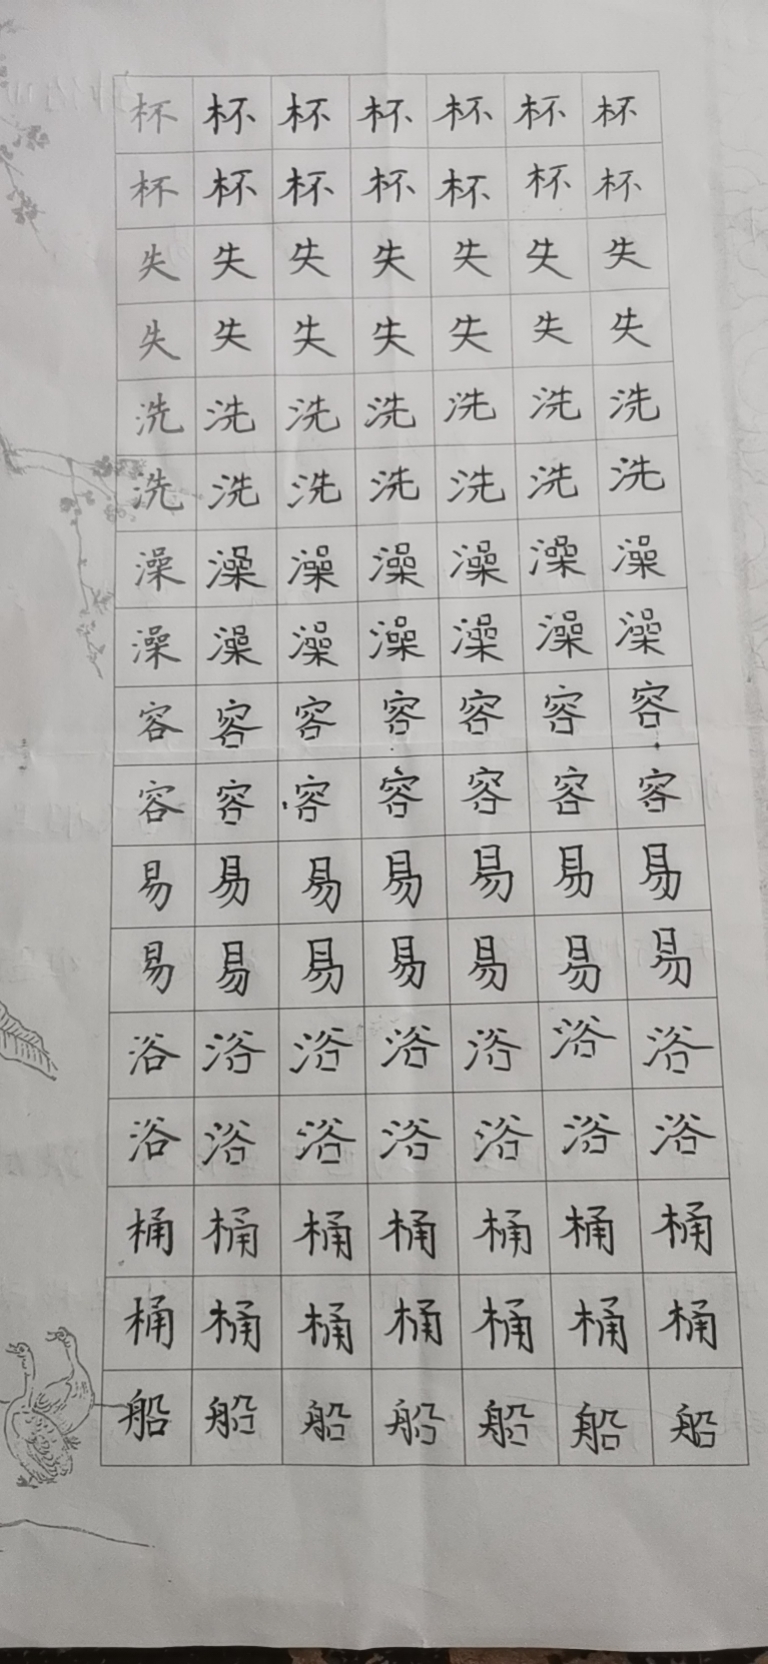 杯杯杯杯杯杯杯
杯杯杯杯杯杯杯
失失失失失失失
失失失失失失失
洗洗洗洗洗洗洗
洗洗洗洗洗洗洗
澡澡澡澡澡澡澡
澡澡澡澡澡澡澡
容容容容容容容
容容容容容容容
易易易易易易易
易易易易易易易
浴浴浴浴浴浴浴
浴浴浴浴浴浴浴
桶桶桶桶桶桶桶
桶桶桶桶桶桶桶
船船船船船船船